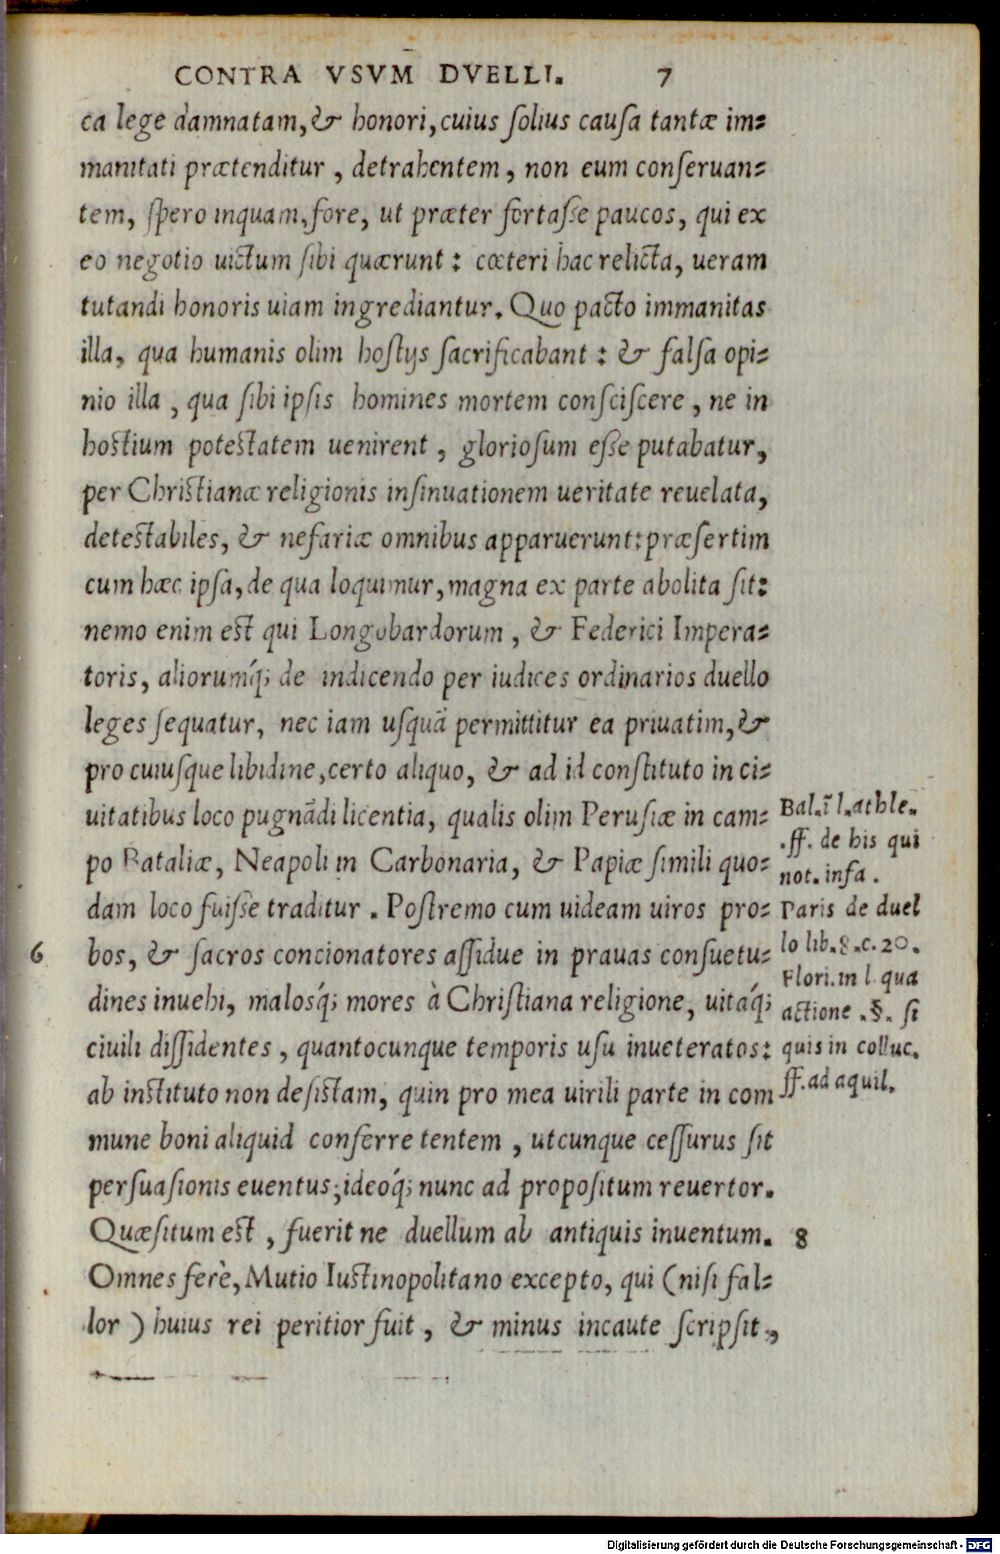 CONTRA VSVM DVELLI. 7
ca lege damnatam, & honori, cuius ſolius cauſa tantæ im=
manitati prætenditur, detrahentem, non eum conſeruan=
tem, ſpero inquam, fore, ut præter fortaſſe paucos, qui ex
eo negotio uictum ſibi quærunt: cæteri hac relicta, ueram
tutandi honoris uiam ingrediantur. Quo pacto immanitas
illa, qua humanis olim hoſtijs ſacrificabant: & falſa opi=
nio illa, qua ſibi ipſis homines mortem conſciſcere, ne in
hoſtium poteſtatem uenirent, glorioſum eſſe putabatur,
per Chriſtianæ religionis inſinuationem ueritate reuelata,
deteſtabiles, & nefariæ omnibus apparuerunt: præſertim
cum hæc ipſa, de qua loquimur, magna ex parte abolita ſit:
nemo enim eſt qui Longobardorum, & Federici Impera=
toris, aliorumq́; de indicendo per iudices ordinarios duello
leges ſequatur, nec iam uſquã permittitur ea priuatim, &
pro cuiuſque libidine, certo aliquo, & ad id conſtituto in ci=
uitatibus loco pugnãdi licentia, qualis olim Peruſiæ in cam=
po Bataliæ, Neapoli in Carbonaria, & Papiæ ſimili quo=
dam loco fuiſſe traditur. Poſtremo cum uideam uiros pro=
6 bos, & ſacros concionatores aſſidue in prauas conſuetu=
dines inuehi, malosq́; mores à Chriſtiana religione, uitaq́;
ciuili diſſidentes, quantocunque temporis uſu inueteratos:
ab inſtituto non deſiſtam, quin pro mea uirili parte in com
mune boni aliquid conferre tentem, utcunque ceſſurus ſit
perſuaſionis euentus; ideoq́; nunc ad propoſitum reuertor.
Quæſitum eſt, fuerit ne duellum ab antiquis inuentum. 8
Omnes ferè, Mutio Iuſtinopolitano excepto, qui (niſi fal=
lor) huius rei peritior fuit, & minus incaute ſcripſit,
Bal. ĩ l. athle.
.ff. de his qui
not. infa.
Paris de duel
lo lib. 8. c. 20.
Flori. in l. qua
actione .§. ſi
quis in colluc.
ff. ad aquil.
Digitalisierung gefördert durch die Deutsche Forschungsgemeinschaft - DFG